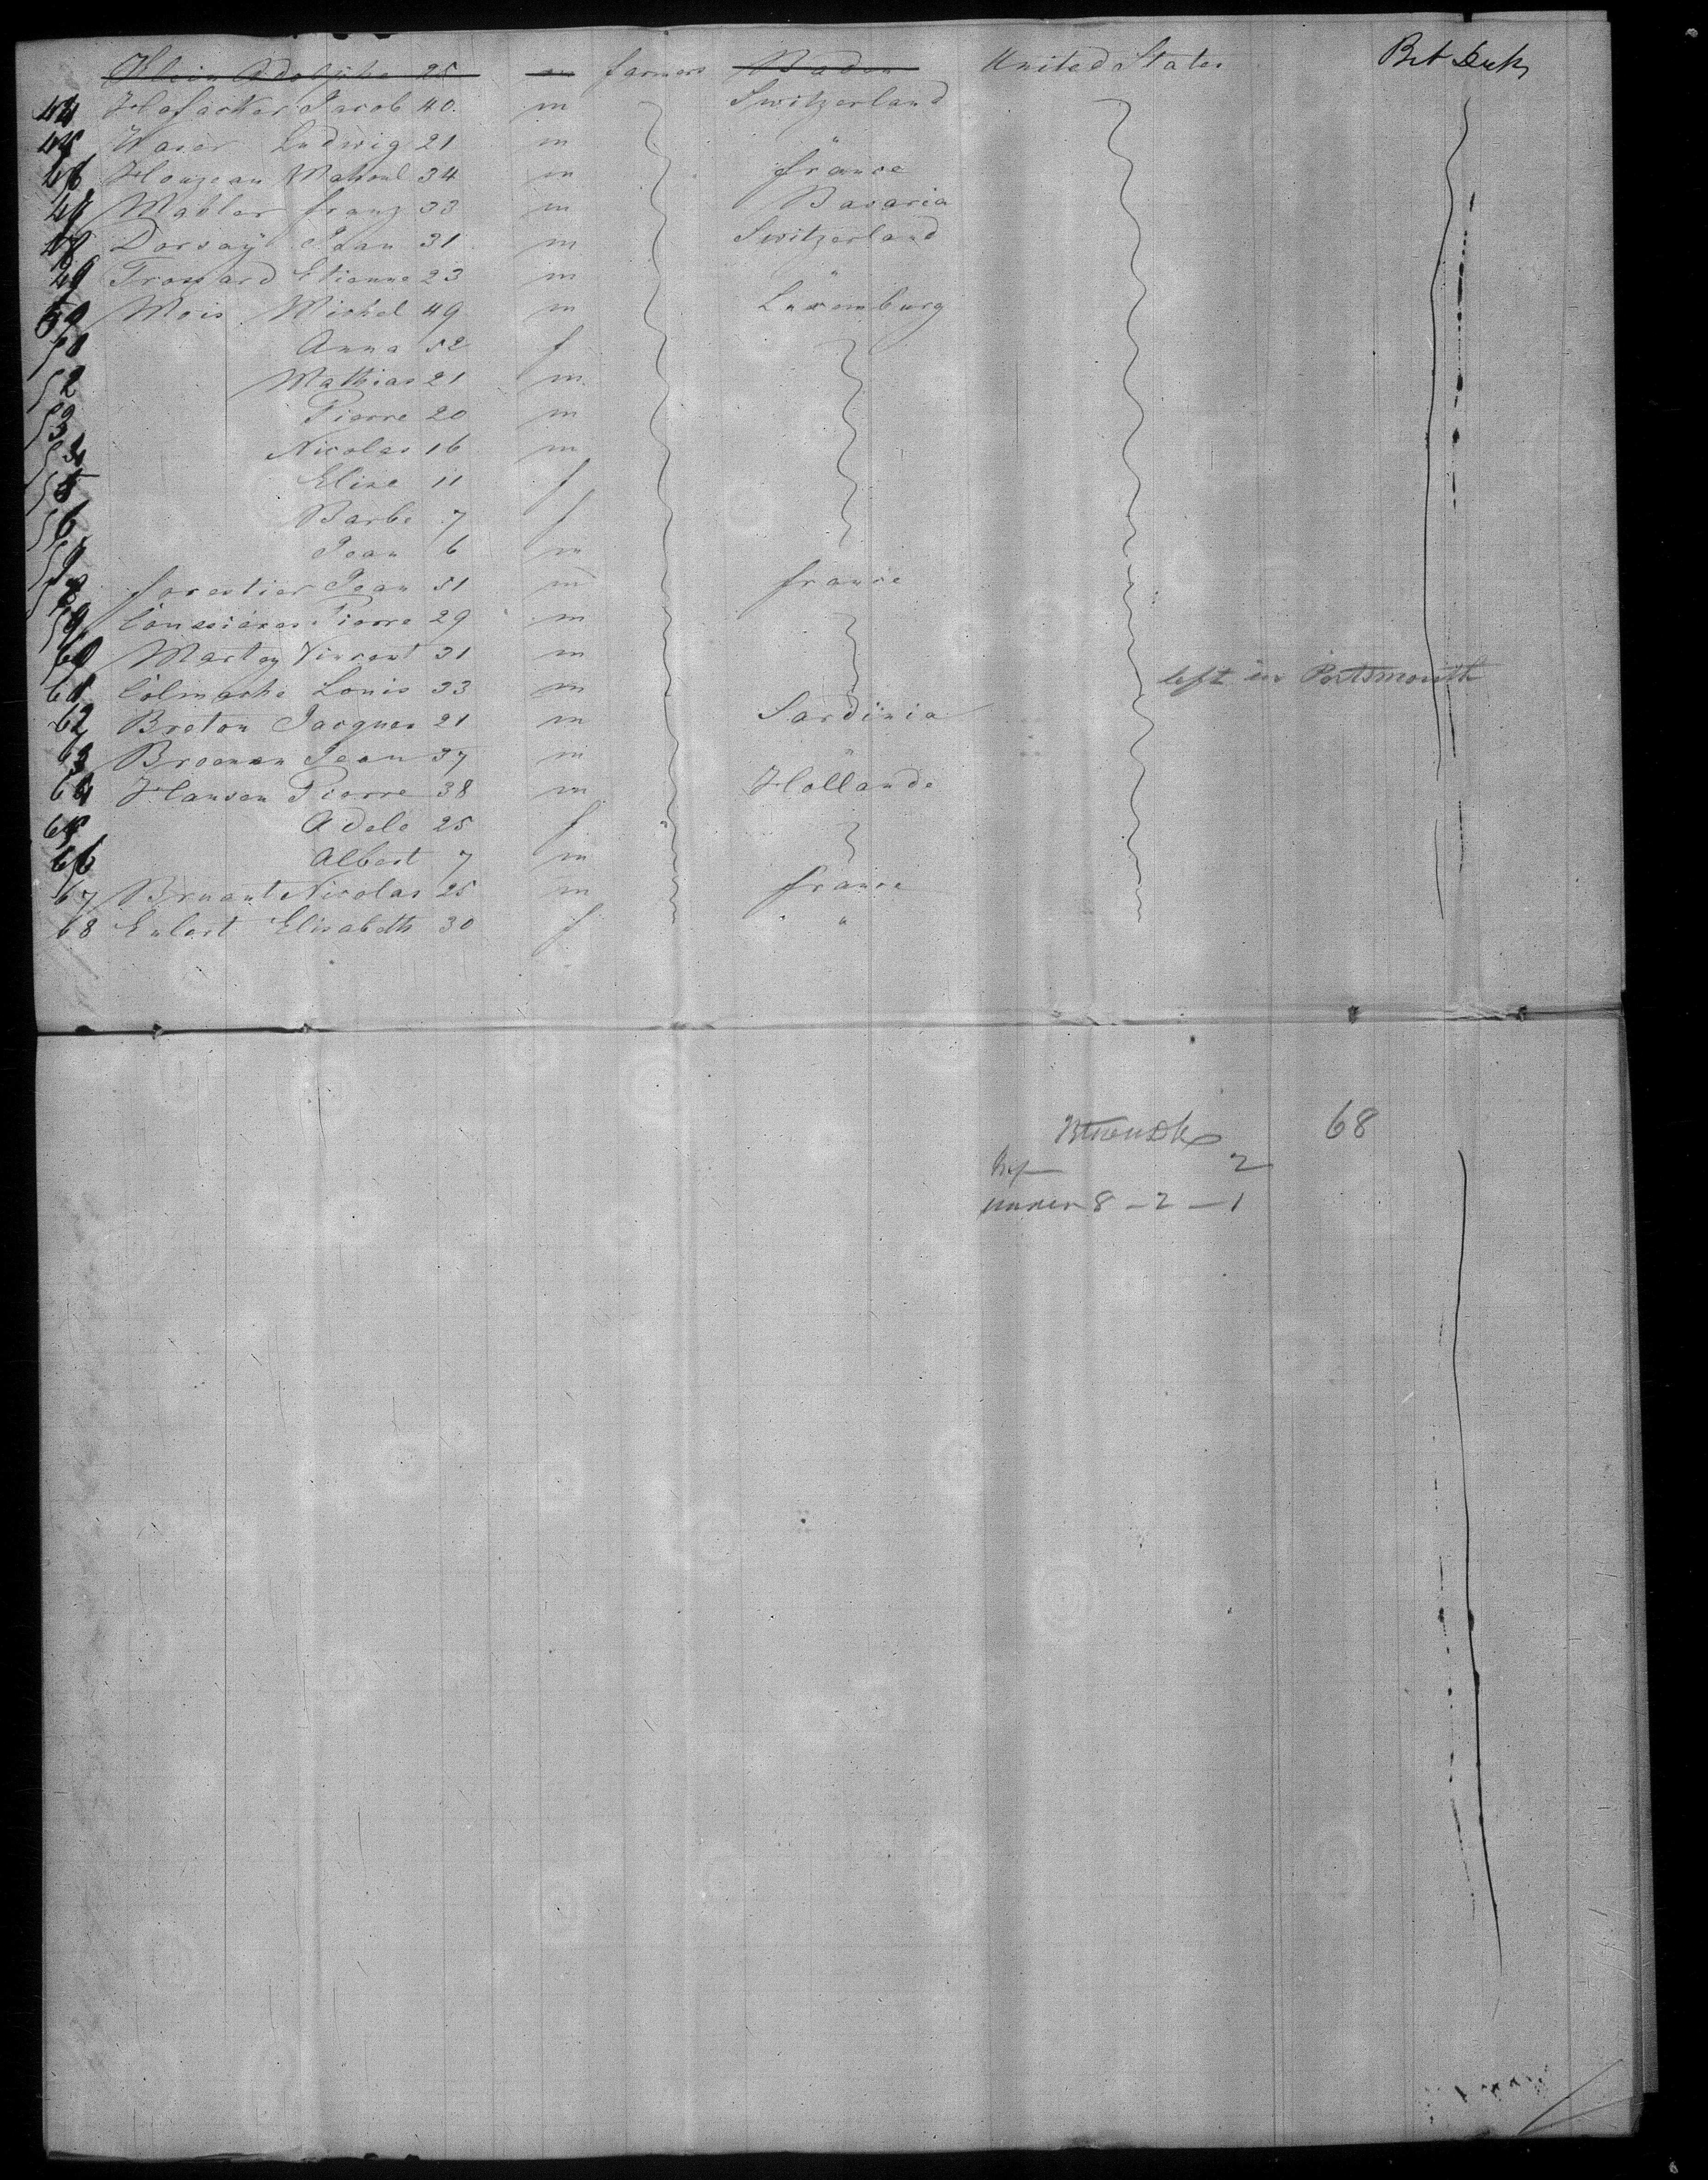 Klein Adolphe 25 m farmers Baden United States Bet Deck
44 Hofacker Jacob 40 m Switzerland
45 Waser Ludwig 21 m "
46 34 m france
47 Madler franz 33 m Bavaria
48 Dorsaÿ Jean 31 m Switzerland
49 Etienne 23 m "
50 Mois Michel 49 m Luxemburg
51 Anna 52 f
52 Mathias 21 m
53 Pierre 20 m
54 Nicolas 16 m
55 Elise 11 f
56 Barbe 7 f
57 Jean 6 m
58 forestier Jean 51 m france
59 Pierre 29 m
60 Vincent 31 m
61 Colmache Louis 33 m left in Portsmouth
62 Breton Jacques 21 m Sardinia
63 Jean 37 m "
64 Hansen Pierre 38 m Hollande
65 Adele 25 f
66 Albert 7 m
67 Bruant Nicolas 25 m france
68 Eulert Elisabeth 30 f "
68
2
under 8 - 2 - 1